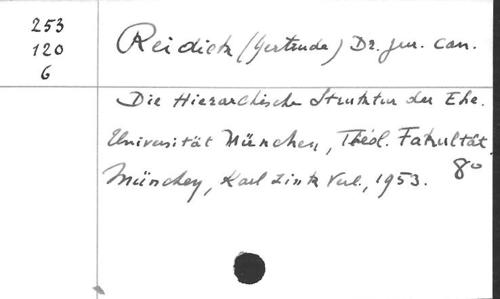 253
120
6
Reidick (Gertrude) Dr. jur. can.
Die Hierarchische Struktur der Ehe.
Universität München, Theol. Fakultät.
München, Karl Zink Verl., 1953. 8º